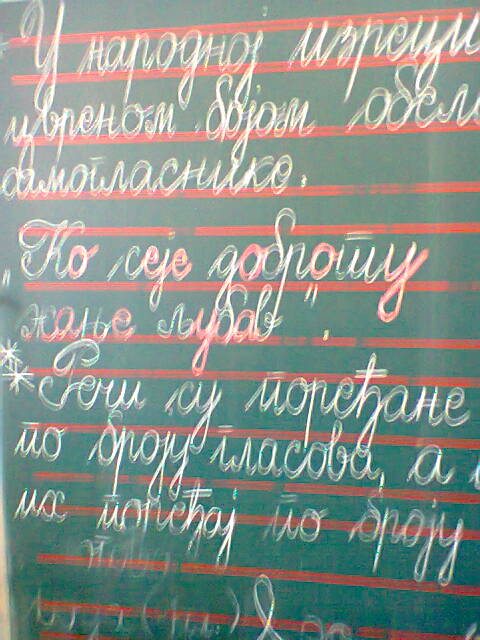 У народној изреци
црвеном бојом обели
самогласнике.
„Ко сеје доброту
жање љубав".
* Речи су поређане
* по броју гласова, а
их поређај по броју